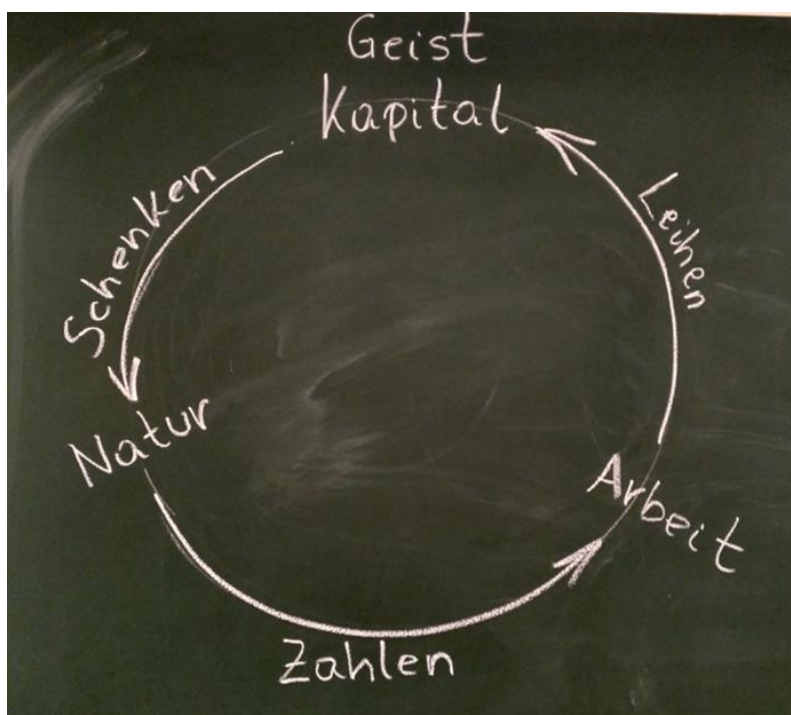 Geist
Kapital
Schenken
Leihen
Natur
Arbeit
Zahlen